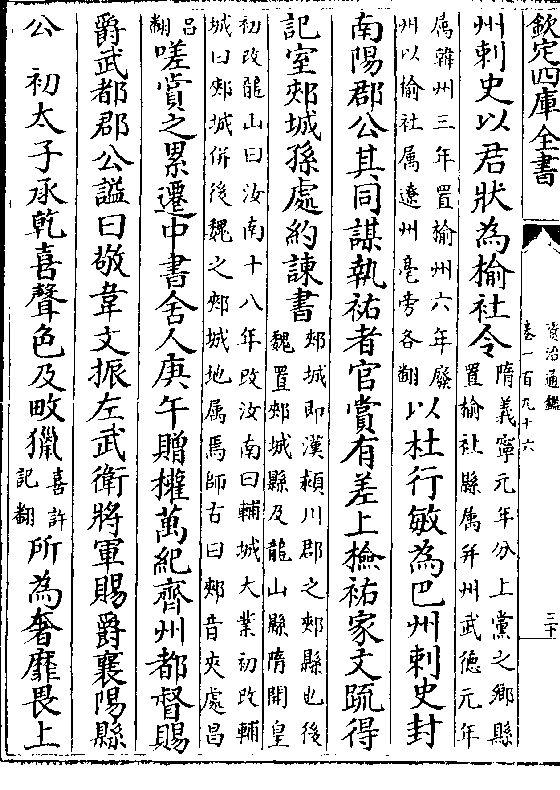 欽定四庫全書
資治通鑑
卷一百九十六
三十
州刺史以君狀為榆社令隋義寧元年分上黨之鄉縣置榆社縣屬并州武德元年
屬韓州三年置榆州六年廢州以榆社屬遼州亳旁各翻以杜行敏為巴州刺史封
南陽郡公其同謀執祐者官賞有差上檢祐家文䟽得
記室郟城孫處約諫書郟城即漢潁川郡之郟縣也後魏置郟城縣及龍山縣隋開皇
初改龍山曰汝南十八年改汝南曰輔城大業初改輔城曰郟城併後魏之郟城地屬焉師古曰郟音夾處昌
呂翻嗟賞之累遷中書舍人庚午贈權萬紀齊州都督賜
爵武都郡公謚曰敬韋文振左武衛將軍賜爵襄陽縣
公 初太子承乾喜聲色及畋獵喜許記翻所為奢靡畏上